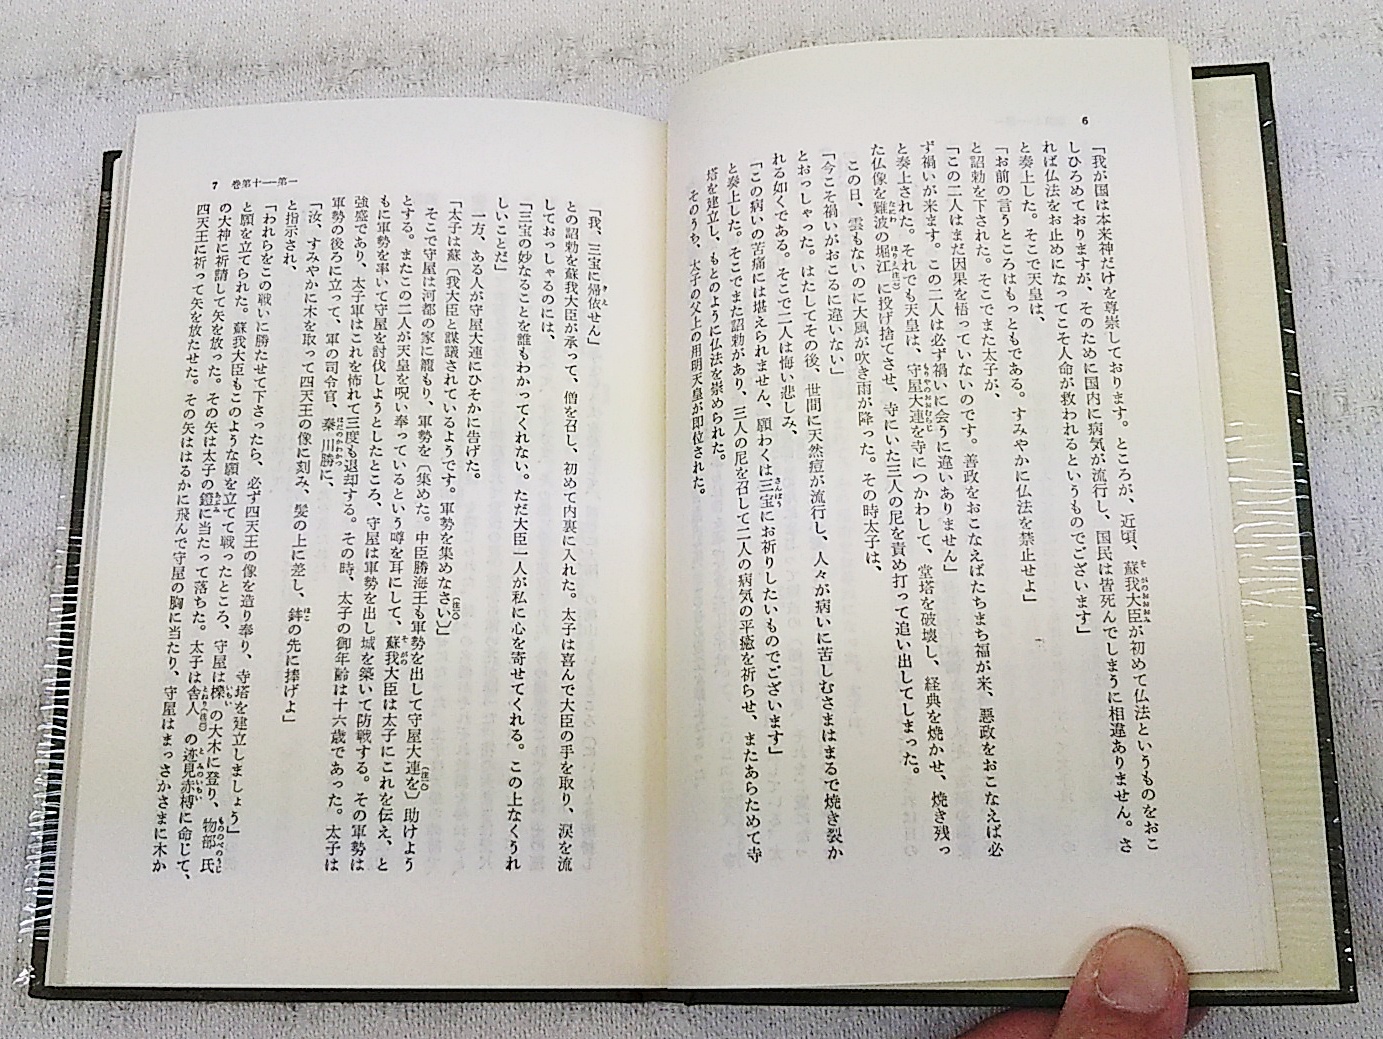 6
「我が国は本来神だけを尊崇しております。ところが、近頃、蘇我大臣が初めて仏法というものをおこ
しひろめておりますが、そのために国内に病気が流行し、国民は皆死んでしまうに相違ありません。さ
れば仏法をお止めになってこそ人命が救われるというものでございます」
と奏上した。そこで天皇は、
「お前の言うところはもっともである。すみやかに仏法を禁止せよ」
と詔勅を下された。そこでまた太子が、
「この二人はまだ因果を悟っていないのです。善政をおこなえばたちまち福が来、悪政をおこなえば必
ず禍いが来ます。この二人は必ず禍いに会うに違いありません」
と奏上された。それでも天皇は、守屋大連を寺につかわして、堂塔を破壊し、経典を焼かせ、焼き残っ
た仏像を難波の堀江に投げ捨てさせ、寺にいた三人の尼を責め打って追い出してしまった。
この日、雲もないのに大風が吹き雨が降った。その時太子は、
「今こそ禍いがおこるに違いない」
とおっしゃった。はたしてその後、世間に天然痘が流行し、人々が病いに苦しむさまはまるで焼き裂か
れる如くである。そこで二人は悔い悲しみ、
「この病いの苦痛には堪えられません、願わくは三宝にお祈りしたいものでございます」
と奏上した。そこでまた詔勅があり、三人の尼を召して二人の病気の平癒を祈らせ、またあらためて寺
塔を建立し、もとのように仏法を崇められた。
そのうち、太子の父上の用明天皇が即位された。
7 巻第十一―第一
「我、三宝に帰依せん」
との詔勅を蘇我大臣が承って、僧を召し、初めて内裏に入れた。太子は喜んで大臣の手を取り、涙を流
しておっしゃるのには、
「三宝の妙なることを誰もわかってくれない。ただ大臣一人が私に心を寄せてくれる。この上なくうれ
しいことだ」
一方、ある人が守屋大連にひそかに告げた。
「太子は蘇〔我大臣と謀議されているようです。軍勢を集めなさい〕」
そこで守屋は河都の家に籠もり、軍勢を〔集めた。中臣勝海王も軍勢を出して守屋大連を〕助けよう
とする。またこの二人が天皇を呪い奉っているという噂を耳にして、蘇我大臣は太子にこれを伝え、と
もに軍勢を率いて守屋を討伐しようとしたところ、守屋は軍勢を出し城を築いて防戦する。その軍勢は
強盛であり、太子軍はこれを怖れて三度も退却する。その時、太子の御年齢は十六歳であった。太子は
軍勢の後ろに立って、軍の司令官、秦川勝に、
「汝、すみやかに木を取って四天王の像に刻み、髪の上に差し、鉾の先に捧げよ」
と指示され、
「われらをこの戦いに勝たせて下さったら、必ず四天王の像を造り奉り、寺塔を建立しましょう」
と願を立てられた。蘇我大臣もこのような願を立てて戦ったところ、守屋は櫟の大木に登り、物部氏
の大神に祈請して矢を放った。その矢は太子の鐙に当たって落ちた。太子は舎人の迹見赤檮に命じて、
四天王に祈って矢を放たせた。その矢ははるかに飛んで守屋の胸に当たり、守屋はまっさかさまに木か